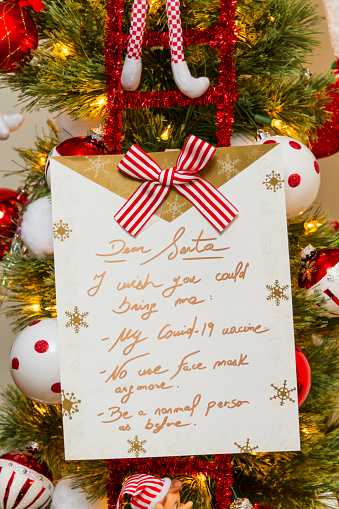 Dear Santa
I wish you could
bring me:
- My Covid-19 vaccine.
- No use Face mask
anymore.
- Be a normal person
as before.